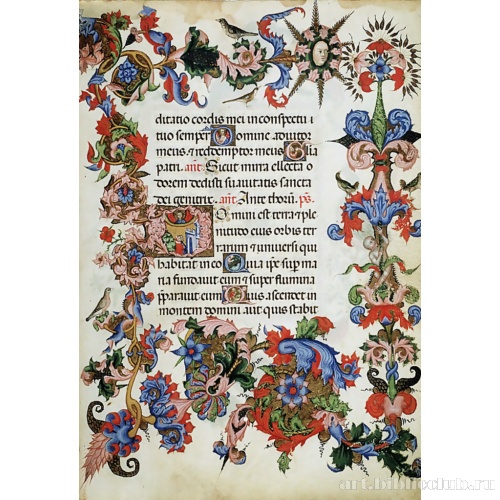 ditatio cordis mei in conspectu
tuo semper Domine adiutor
meus & redemptor meus Gl'ia
patri. añt. Sicut mirra ellecta o
dorem dedisti suavitatis sancta
dei genitrix. añt. Ante thorũ. ps̃.
Domini est terra & ple
nitudo eius orbis ter
rarum & universi qui
habitant in eo Quia ip̃e sup ma
ria fundavit eum & super flumina
p̃paravit eum Quis ascendet in
montem domini aut quis stabit
art.biblioclub.ru